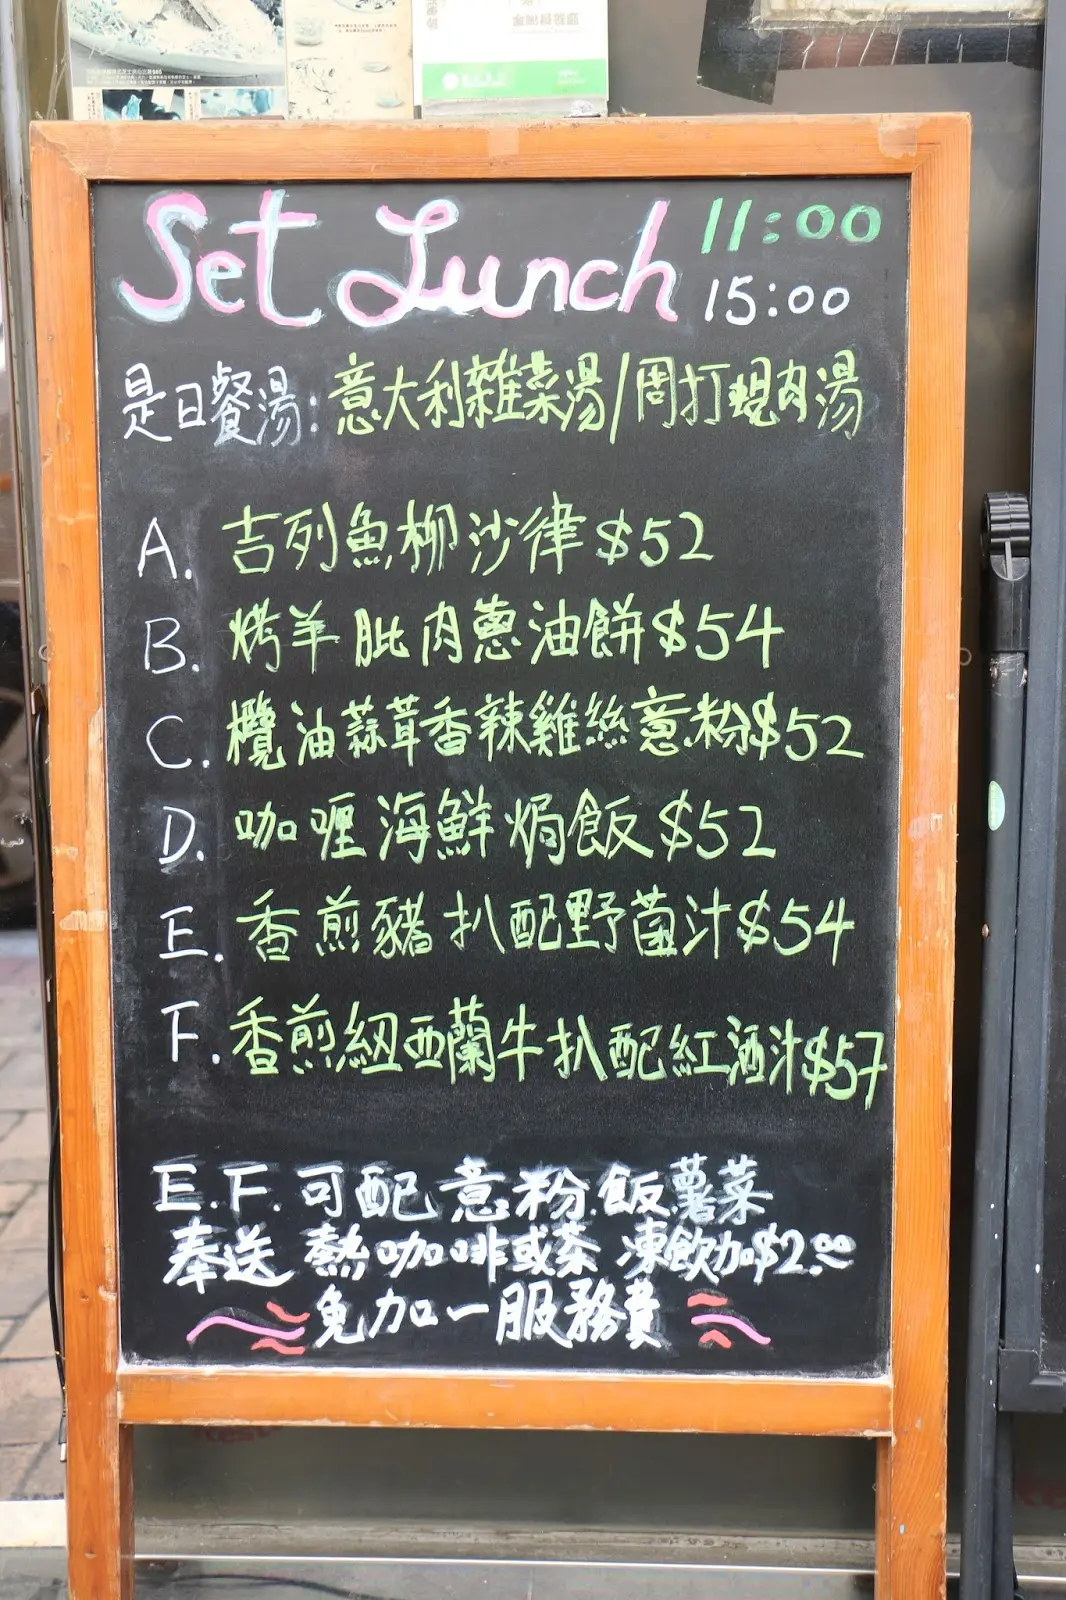 Set Lunch 11:00
15:00
是日餐湯: 意大利雜菜湯/周打蜆肉湯
A. 吉列魚柳沙律$52
B. 烤羊肶肉蔥油餅$54
C. 欖油蒜茸香辣雞絲意粉$52
D. 咖喱海鮮焗飯$52
E. 香煎豬扒配野菌汁$54
F. 香煎紐西蘭牛扒配紅酒汁$57
E.F. 可配意粉.飯薯菜
奉送 熱咖啡或茶 凍飲加$2.00
免加一服務費